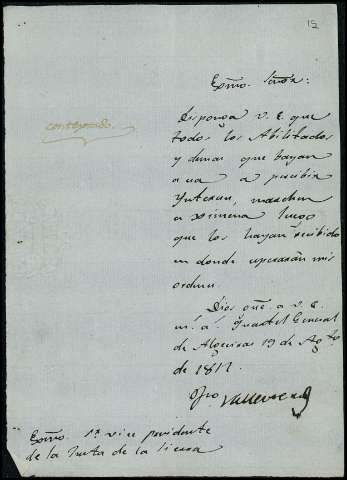 15
Exmo. Señor:
contestado.
Disponga V. E. que
todos los Abilitados
y demas que bayan
a esa a recibir
Ynteres, marchen
a Ximena luego
que los hayan recibido
en donde esperarán mis
ordenes.
Dios gue. a V. E.
m.s a.s Quartel General
de Algeciras 19 de Agto
de 1811.
Exmo. Sr. vice presidente
de la Junta de la Sierra